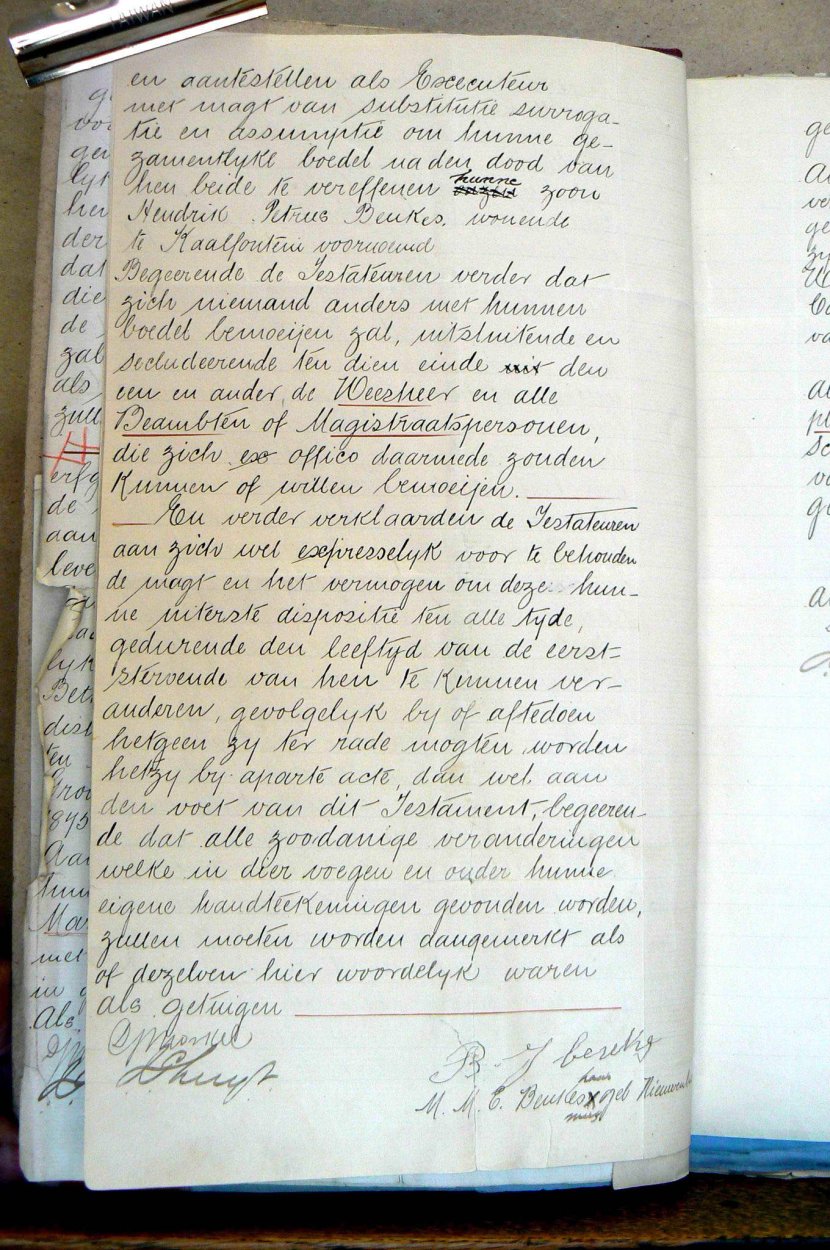 TAIWAN
en aantestellen als Executeur
met magt van substitutie surroga-
tie en assumptie om hunne ge-
zamentlyke boedel na den dood van
hen beide te vereffenen hunne zoon
Hendrik Petrus Beukes, wonende
te Kaalfontein voornoemd
Begeerende de Testateuren verder dat
zich niemand anders met hunnen
boedel bemoeijen zal, uitsluitende en
secludeerende ten dien einde den
een en ander, de Weesheer en alle
Beambten of Magistraatspersonen,
die zich ex officio daarmede zouden
kunnen of willen bemoeijen.
En verder verklaarden de Testateuren
aan zich wel expresselyk voor te behouden
de magt en het vermogen om deze hun-
ne uiterste dispositie ten alle tyde,
gedurende den leeftyd van de eerst-
stervende van hen te kunnen ver-
anderen, gevolgelyk by of aftedoen
hetgeen zy ter rade mogten worden
hetzy by aparte acte, dan wel aan
den voet van dit Testament, begeeren-
de dat alle zoodanige veranderingen
welke in dier voegen en onder hunne
eigene handteekeningen gevonden worden,
zullen moeten worden aangemerkt als
of dezelven hier woordelyk waren
als getuigen
B. J.
her
M. M. C. Beukes X geb
mark